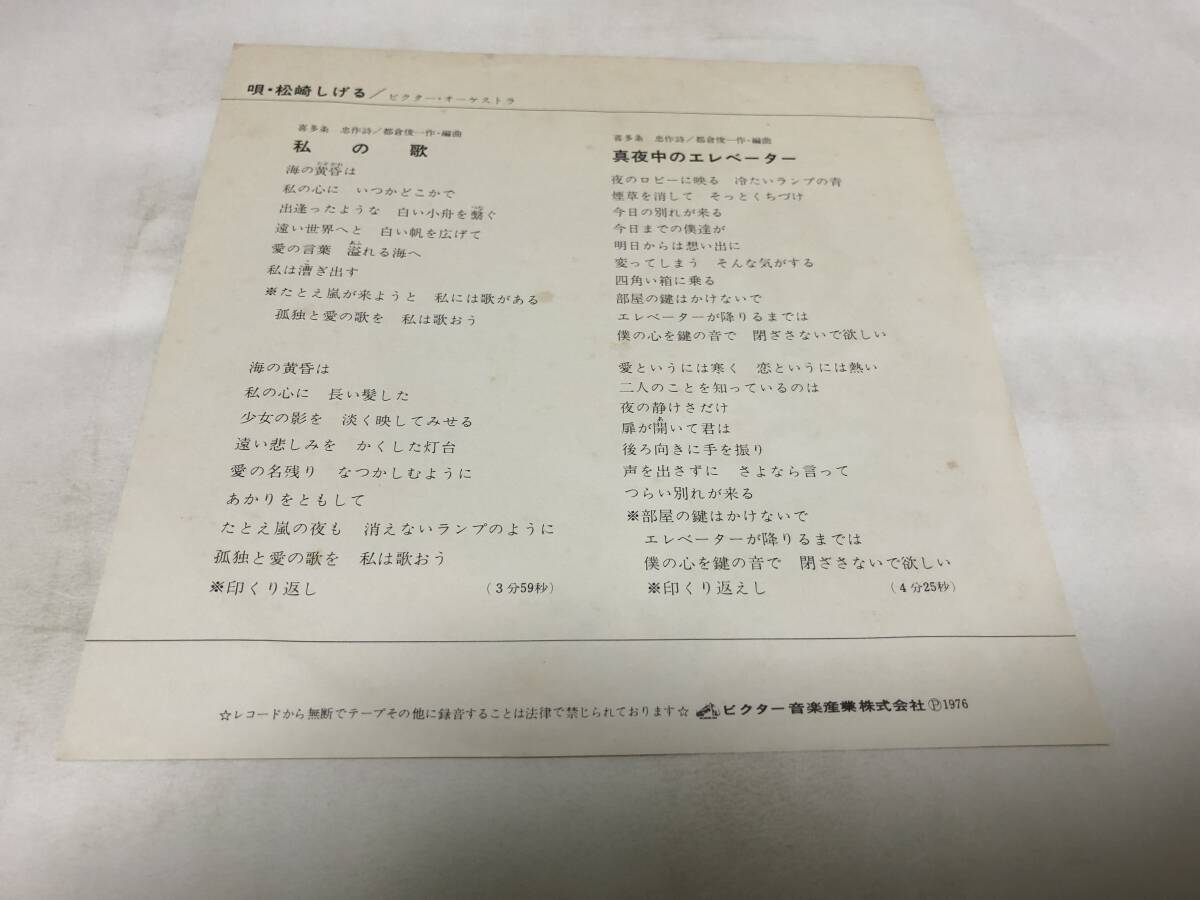 唄・松崎しげる/ビクター・オーケストラ
喜多条 忠作詩/都倉俊一作・編曲
私の歌
海の黄昏は
私の心に いつかどこかで
出逢ったような 白い小舟を繋ぐ
遠い世界へと 白い帆を広げて
愛の言葉 溢れる海へ
私は漕ぎ出す
※たとえ嵐が来ようと 私には歌がある
孤独と愛の歌を 私は歌おう
海の黄昏は
私の心に 長い髪した
少女の影を 淡く映してみせる
遠い悲しみを かくした灯台
愛の名残り なつかしむように
あかりをともして
たとえ嵐の夜も 消えないランプのように
孤独と愛の歌を 私は歌おう
※印くり返し (3分59秒)
喜多条 忠作詩/都倉俊一作・編曲
真夜中のエレベーター
夜のロビーに映る 冷たいランプの青
煙草を消して そっとくちづけ
今日の別れが来る
今日までの僕達が
明日からは想い出に
変ってしまう そんな気がする
四角い箱に乗る
部屋の鍵はかけないで
エレベーターが降りるまでは
僕の心を鍵の音で 閉ざさないで欲しい
愛というには寒く 恋というには熱い
二人のことを知っているのは
夜の静けさだけ
扉が開いて君は
後ろ向きに手を振り
声を出さずに さよなら言って
つらい別れが来る
※部屋の鍵はかけないで
エレベーターが降りるまでは
僕の心を鍵の音で 閉ざさないで欲しい
※印くり返えし (4分25秒)
☆レコードから無断でテープその他に録音することは法律で禁じられております☆ ビクター音楽産業株式会社Ⓟ1976